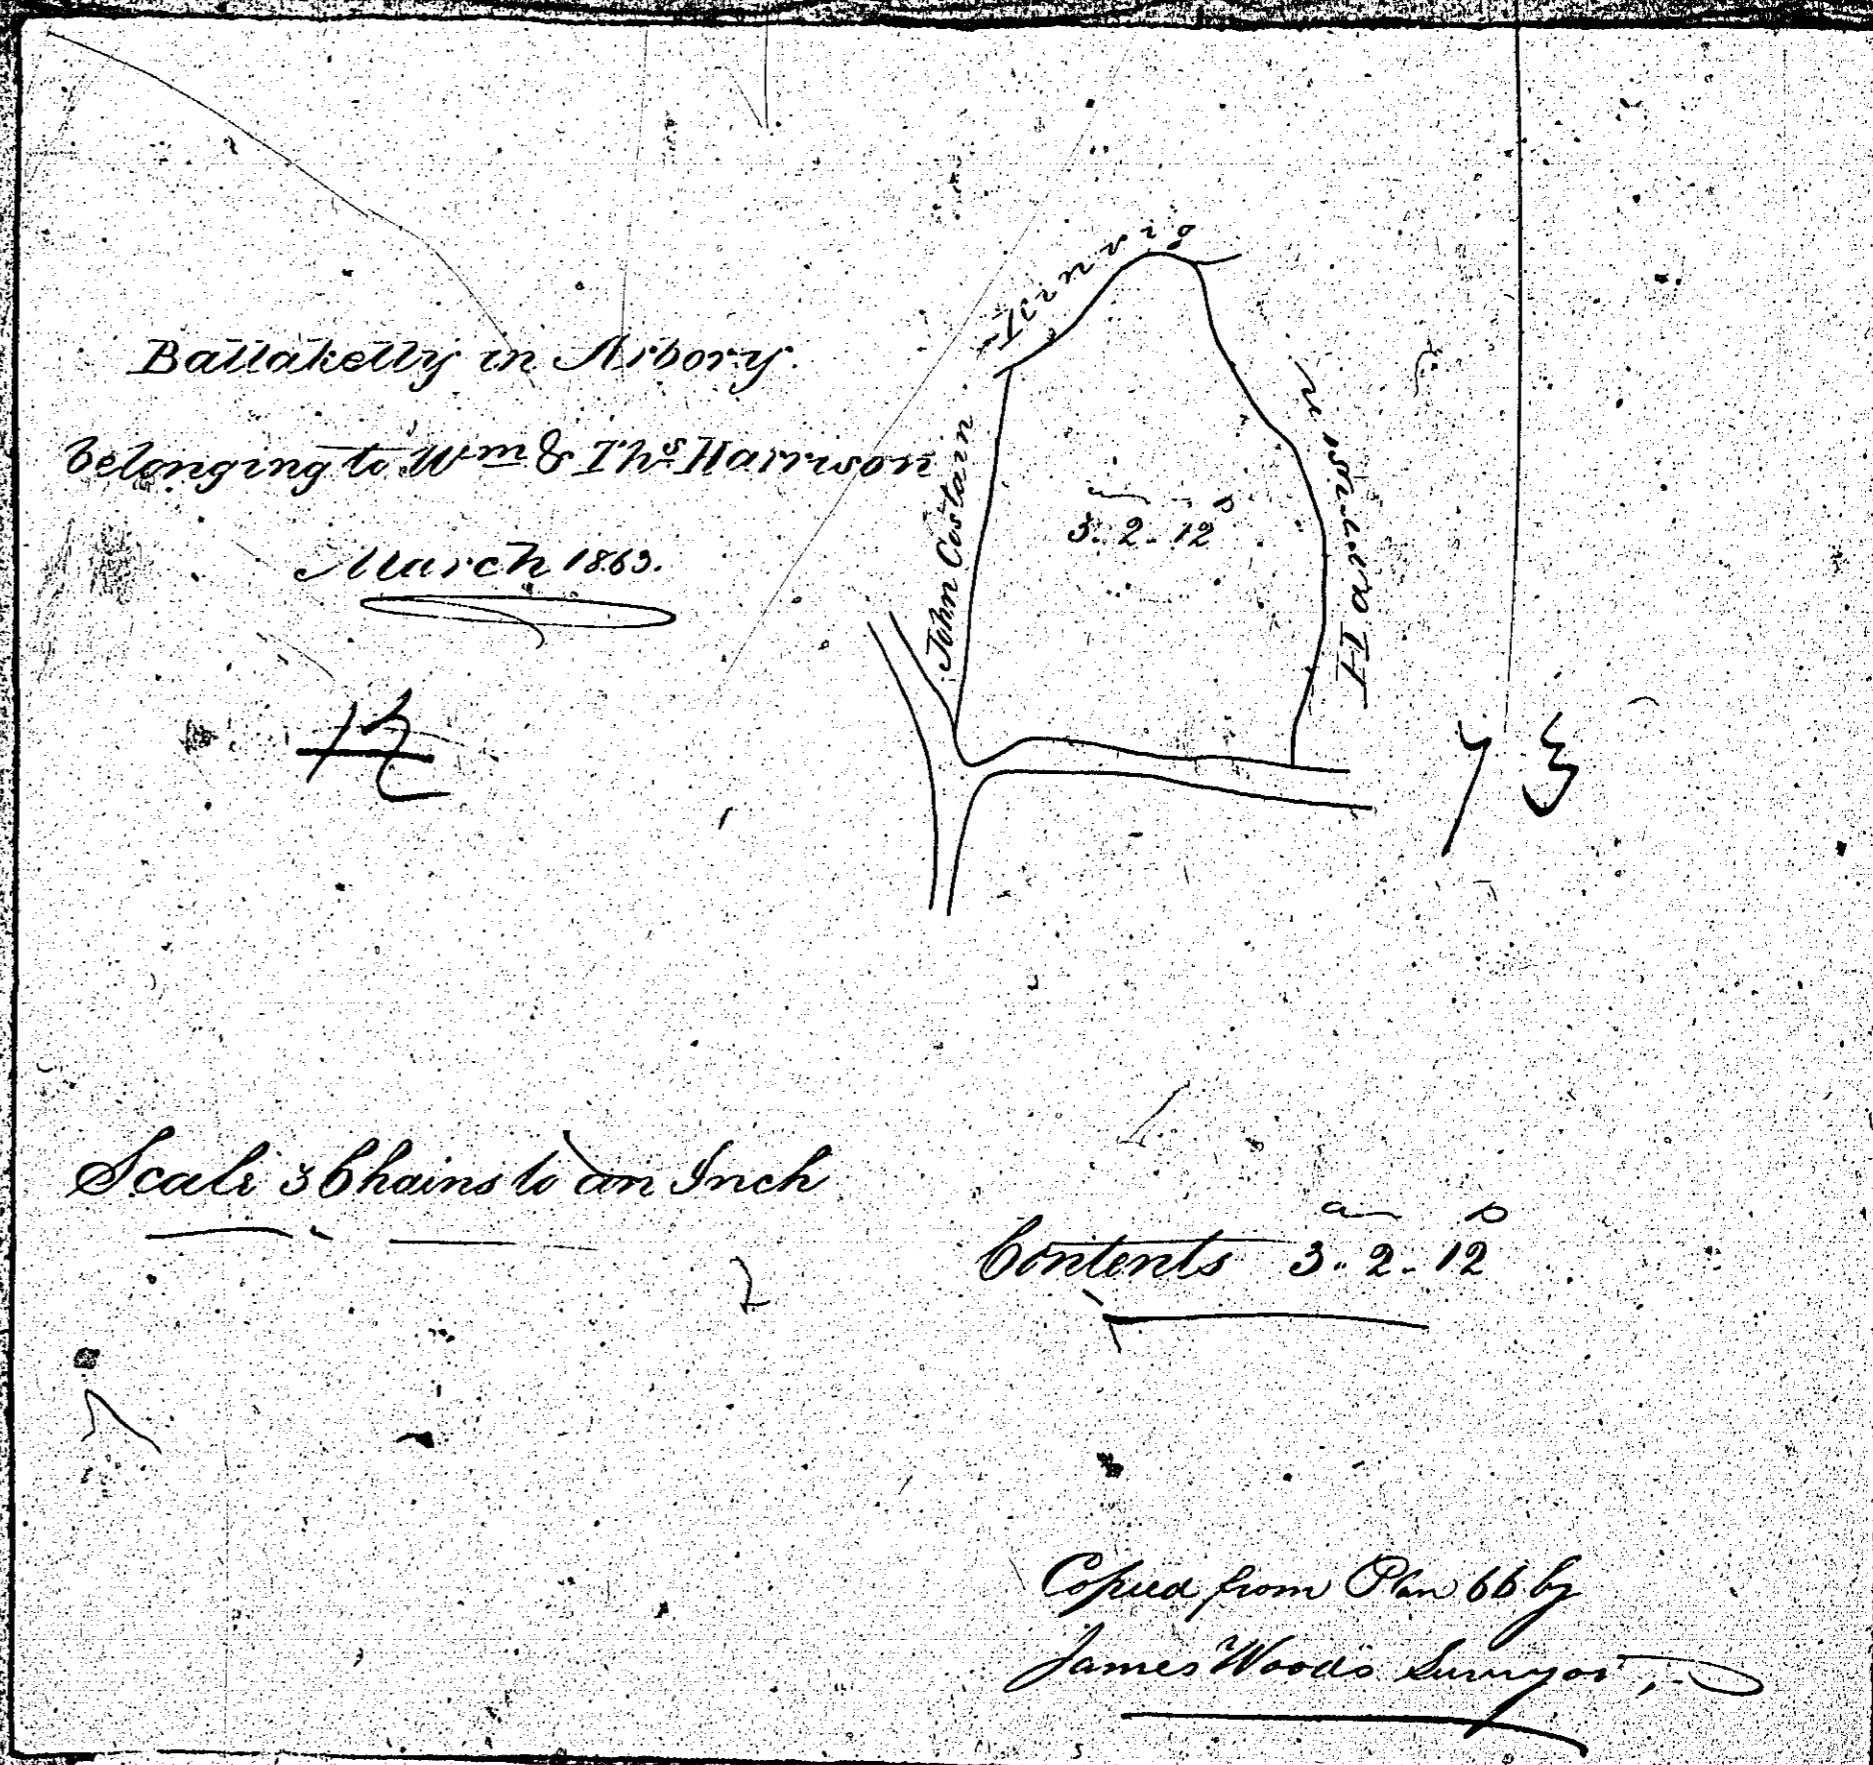 Ballakelly in Arbory.
belonging to Wm & Thos Harrison
March 1863.
12
John Costain
Harrison
a p
3. 2. 12
73
Scale 3 Chains to an Inch
a p
Contents 3. 2. 12
Copied from Plan 66 by
James Woods Surveyor